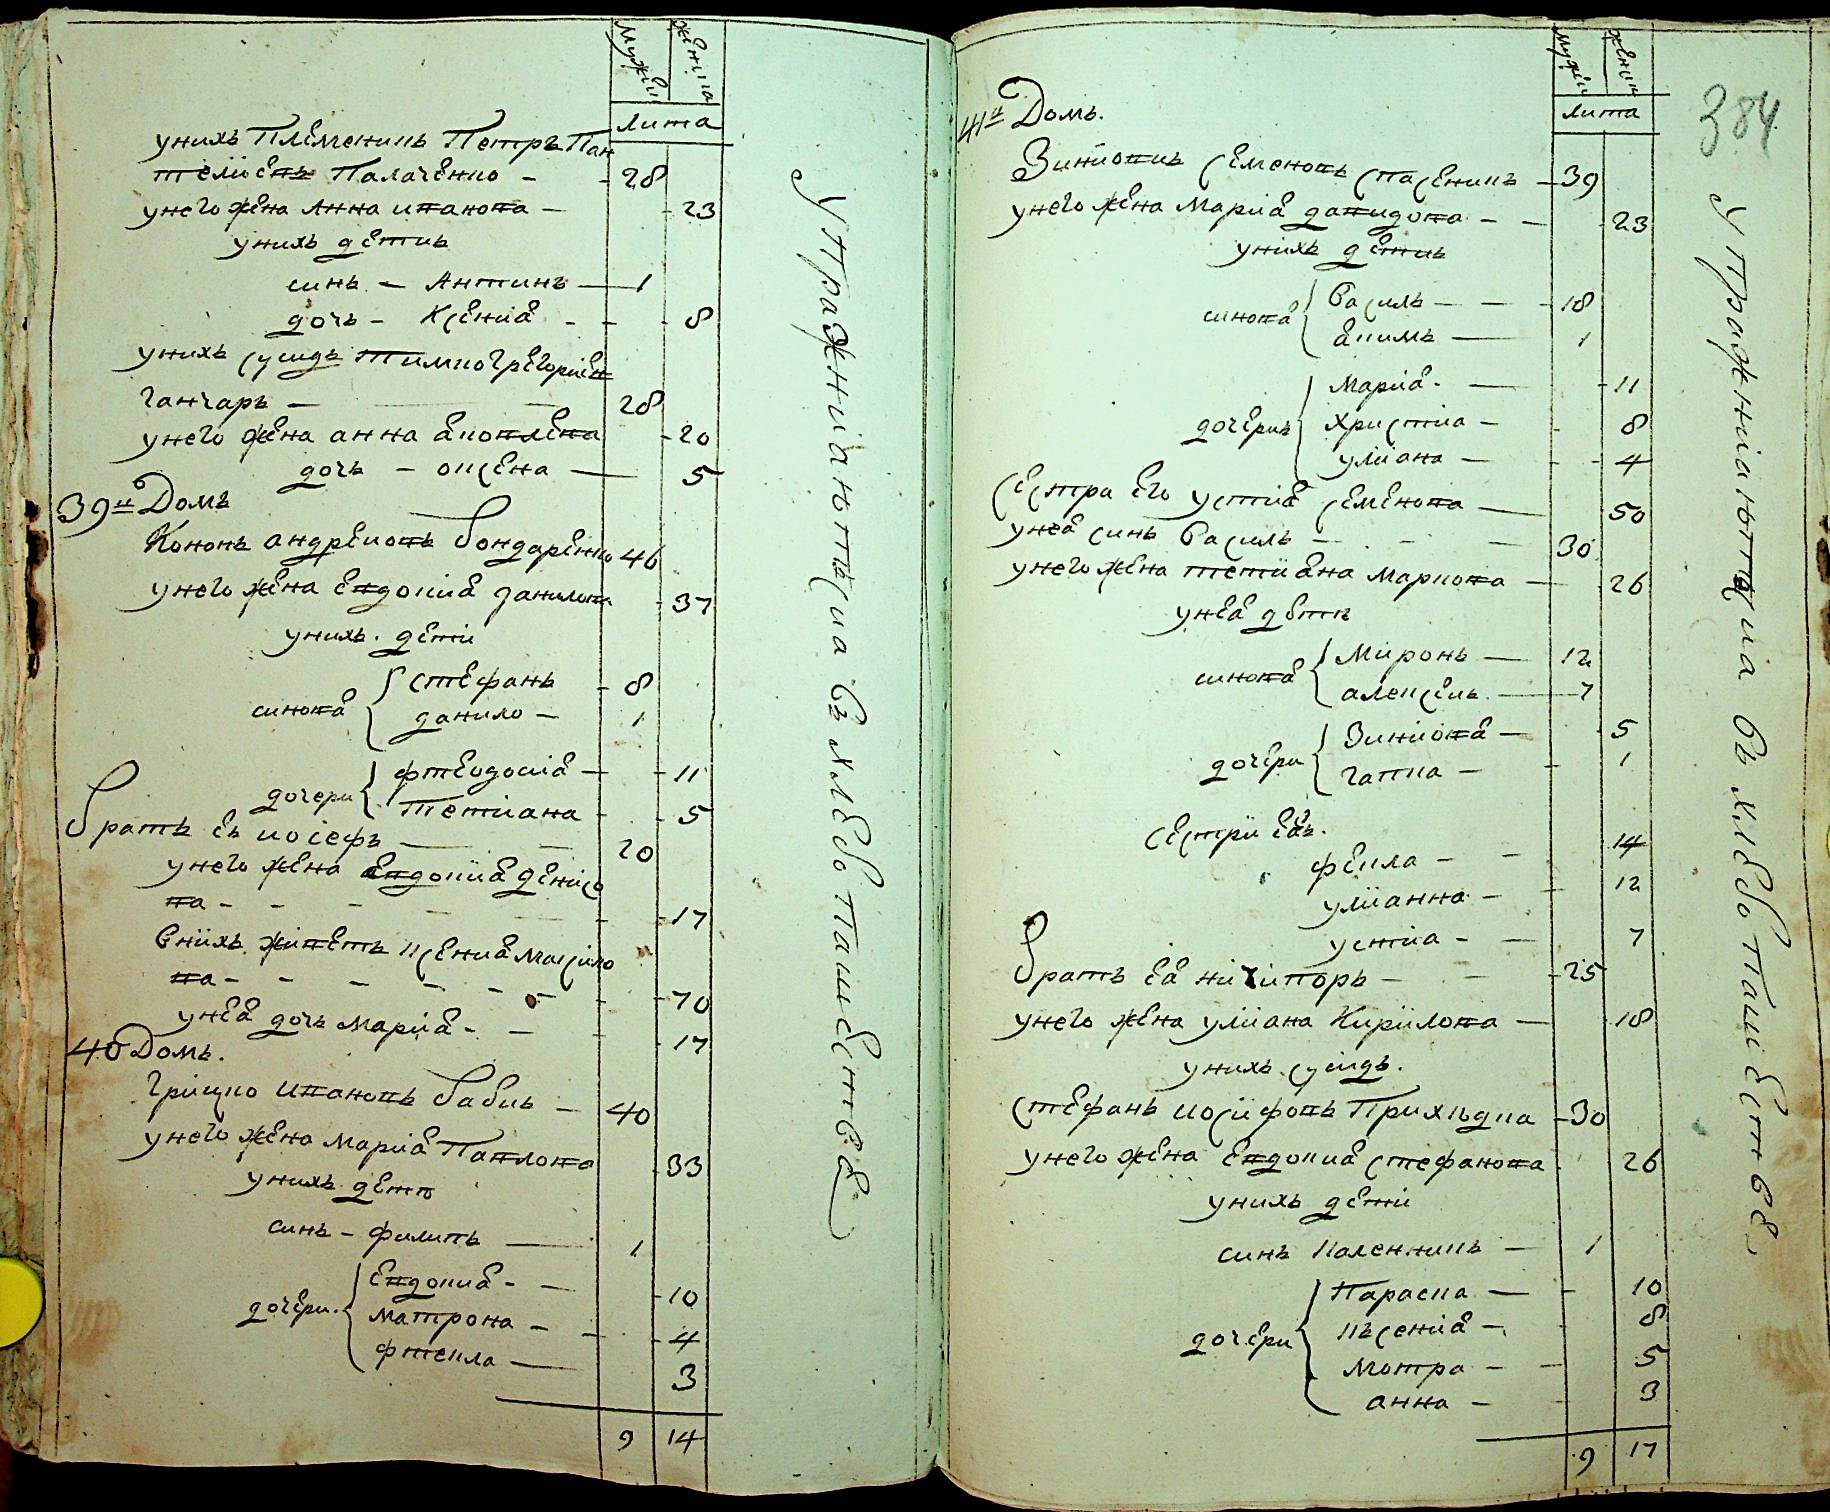 мужій женша
лита
унихъ Племеникъ Петръ Пан
телїевъ Палаченко - - 28
унего жена Анна иванова - - 23
унихъ детиъ
синъ - Антинъ - 1
дочь - Ксенiа - - 8
унихъ сусидъ Тимко Грегориев
Ганчаръ - 28
унего жена анна Яковлева - 20
дочь - оксена - 5
39й Домъ
Кононъ андреювъ Бондаренко 46
унего жена Евдокиа данилова - 37
унихъ. детi
синова { Стефанъ - 8
данило - 1
дочери { фтеодосiа - 11
Тетиана - 5
братъ ея иосефъ - 20
унего жена Евдокиiа Денiсо
ва - - - 17
Внiихъ живетъ Ксениа Максiмо
ва - - - - 70
унея дочь Марiиа - - 17
40 Домъ.
Грицко Ивановъ Бабиъ - 40
унего жена Мариа Павлова 33
унихъ дети
синъ - филипъ - 1
дочери { Евдокиа - - 10
Матрона - - 4
фтекла - 3
9 14
Упражнiаютъсиа въ хлебопашестве
384
мужій женш
лита
41й Домъ.
Зинiовиъ Семеновъ Спасеникъ - 39
унего жена Мариа давидова - - 23
унихъ детиъ
синова { Василь - - - 18
Якимъ - 1
дочериъ { Мариа - - 11
Христиа - - 8
улiана - - 4
Сестра его устиа Семенова - 50
унея синъ Василь - - - 30
унего жена тетиiана Маркова - 26
унея дети
синова { Миронъ - 12
алексеиъ - 7
дочери { Зинiова - 5
гапка - 1
Сестрiи еяъ.
фекла - - 14
улiанна - 12
устиа - - 7
братъ ея нiчипоръ - - 25
унего жена улiана Кирiилова - 18
унихъ сусидъ.
Стефанъ иосiифовъ Прихъдка - 30
унего жена Евдокиа Стефанова 26
унихъ детi
синъ Каленникъ - 1
дочери { Параска - - 10
Къссениа - 8
мотра - - 5
анна - 3
9 17
Упражнiаютъсиа въ хлебопашестве